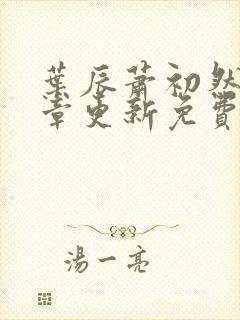 葉辰蕭初然
章更新免費
湯一亮